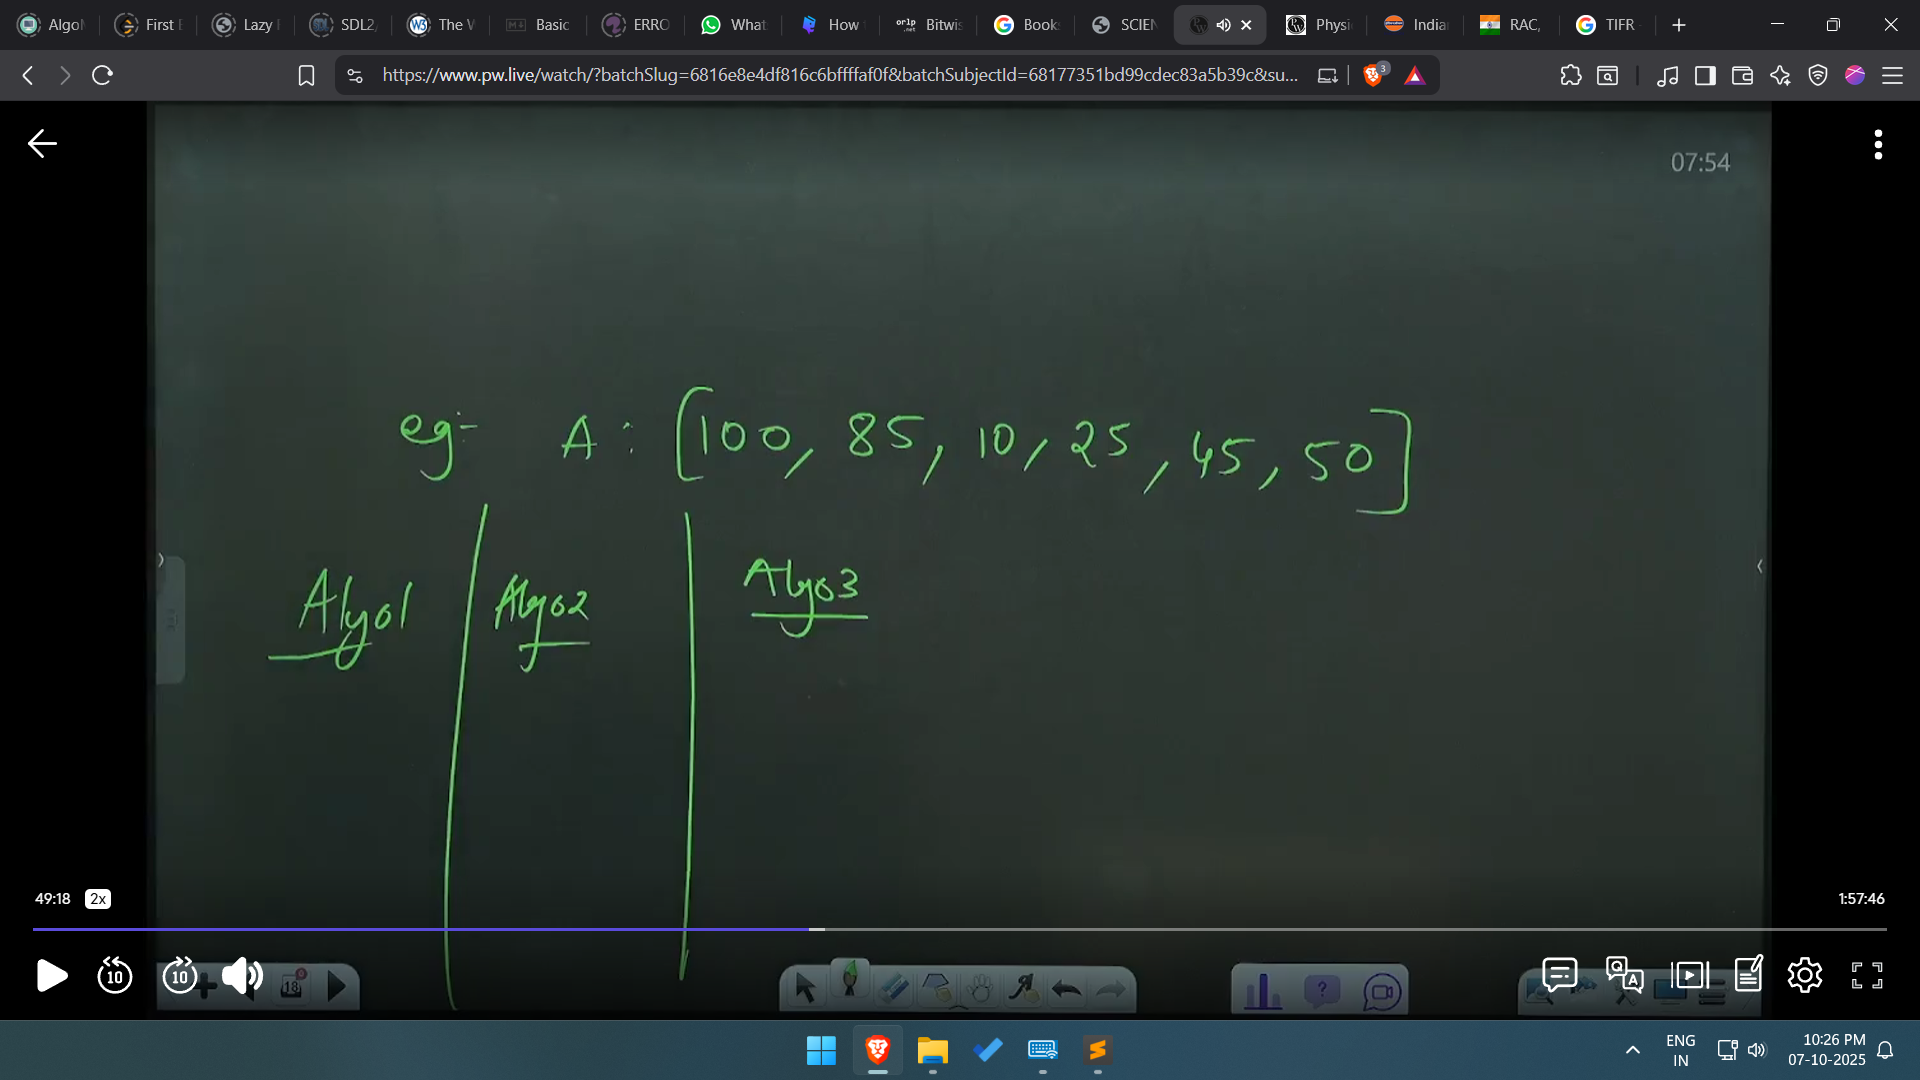 Algo
First E
Lazy
SDL2,
The W
Basic
ERRO
What
How
orlp .net
Bitwis
Book
SCIEN
Physi
India
RAC,
TIFR -
https://www.pw.live/watch/?batchSlug=6816e8e4df816c6bffffaf0f&batchSubjectId=68177351bd99cdec83a5b39c&su...
3
07:54
eg:- A : [100, 85, 10, 25, 45, 50]
Algo1
Algo2
Algo3
49:18
2x
1:57:46
10
10
18
6
?
Q A
ENG
IN
10:26 PM
07-10-2025